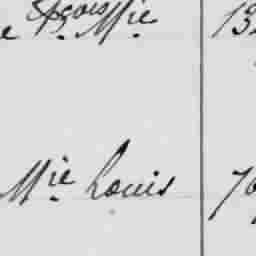 e Fçois Mie 13
Mie Louis 76